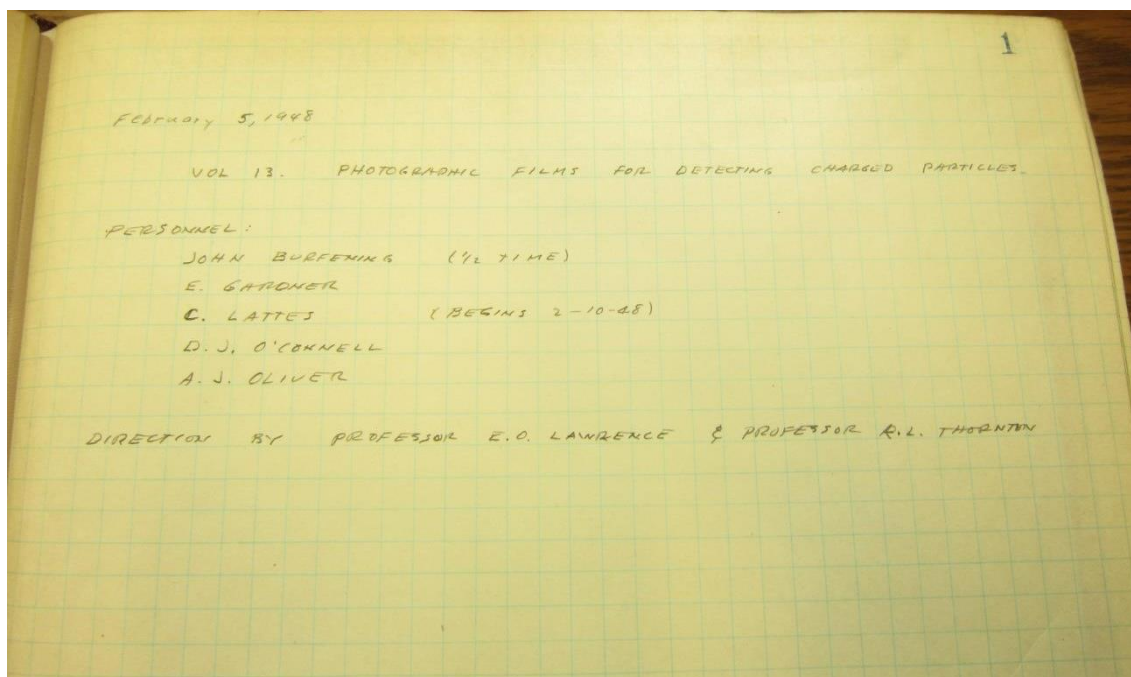 1
February 5, 1948
VOL 13. PHOTOGRAPHIC FILMS FOR DETECTING CHARGED PARTICLES.
PERSONNEL:
JOHN BURFENING (1/2 TIME)
E. GARDNER
C. LATTES (BEGINS 2-10-48)
D. J. O'CONNELL
A. J. OLIVER
DIRECTION BY PROFESSOR E.O. LAWRENCE & PROFESSOR R.L. THORNTON